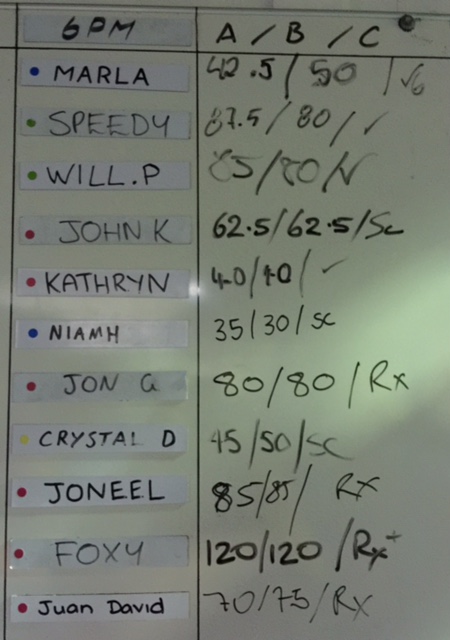 6PM A / B / C
MARLA 42.5 / 50 /
SPEEDY 87.5 / 80 / ✓
WILL.P 85/80/
JOHN K 62.5/62.5/Sc
KATHRYN 40/40/ ✓
NIAMH 35/30/sc
JON G 80/80/Rx
CRYSTAL D 45/50/sc
JONEEL 85/85/ RX
FOXY 120/120 /Rx+
Juan David 70/75/Rx